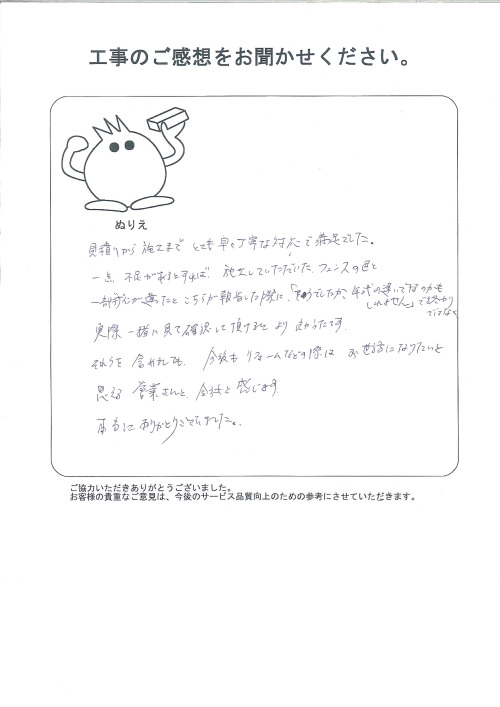 工事のご感想をお聞かせください。
ぬりえ
見積りから施工まで とても早く丁寧な対応で満足でした。
一点 不足があるとすれば、施工していただいた、フェンスの色と
一部形が違ったと こちらが報告した際に、「そうでしたか、年式の違いでなのかもしれません」で終わりではなく
実際 一緒に見て確認して頂けると より 良かったです。
それらを含めても、今後も リフォームなどの際は お世話になりたいと
思える 営業さんと、会社と 感じます。
本当に ありがとうございました。
ご協力いただきありがとうございました。
お客様の貴重なご意見は、今後のサービス品質向上のための参考にさせていただきます。